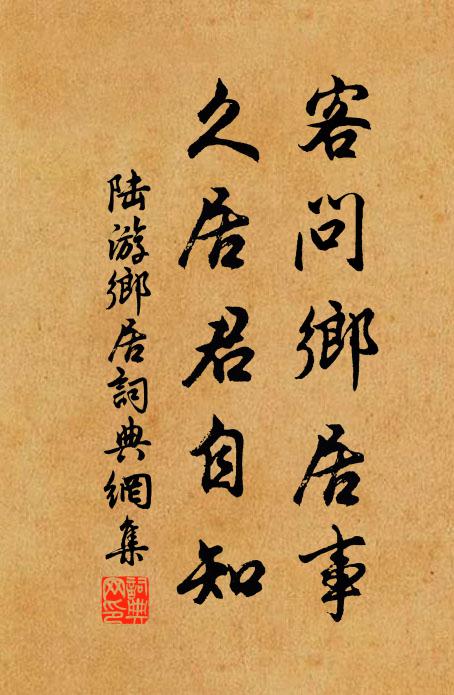 客問鄉居事
久居君自知
陆游鄉居詞典網集
詞典網印